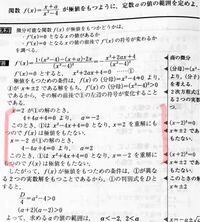 関数 f(x)=(x+a)/(x²-4) が極値をもつように，定数aの値の範囲を定め
微分可能な関数 f(x) が極値をもつかどうかは，
f'(x)=0 となるxの値があるか
f'(x)=0 となるxの値の前後で f'(x) の符号が変わるか
を調べる。
f'(x)=0 とすると， x²+2ax+4=0 ……①
極値をもつための条件は，f(x)の分母 (x²-4)≠0 より，
①が x≠±2 である解をもち，f'(x)の分母 (x²-4)²>0
であるから，その解の前後で①の左辺の符号が変わること
である。
x=2 が①の解のとき，
4+4a+4=0 より， a=-2
このとき，①は x²-4x+4=0 となり，x=2 を重解にも
つので f(x) は極値をもたない。
x=-2 が①の解のとき，
4-4a+4=0 より， a=2
このとき，①は x²+4x+4=0 となり，x=-2 を重解に
もつので f(x) は極値をもたない。
したがって，f(x) が極値をもつのは，①が異な
る2つの実数解をもつことであるから，①の判別式をDと
すると，
D/4=a²-4>0
(a+2)(a-2)>0
よって，求めるaの値の範囲は， a<-2, 2<a